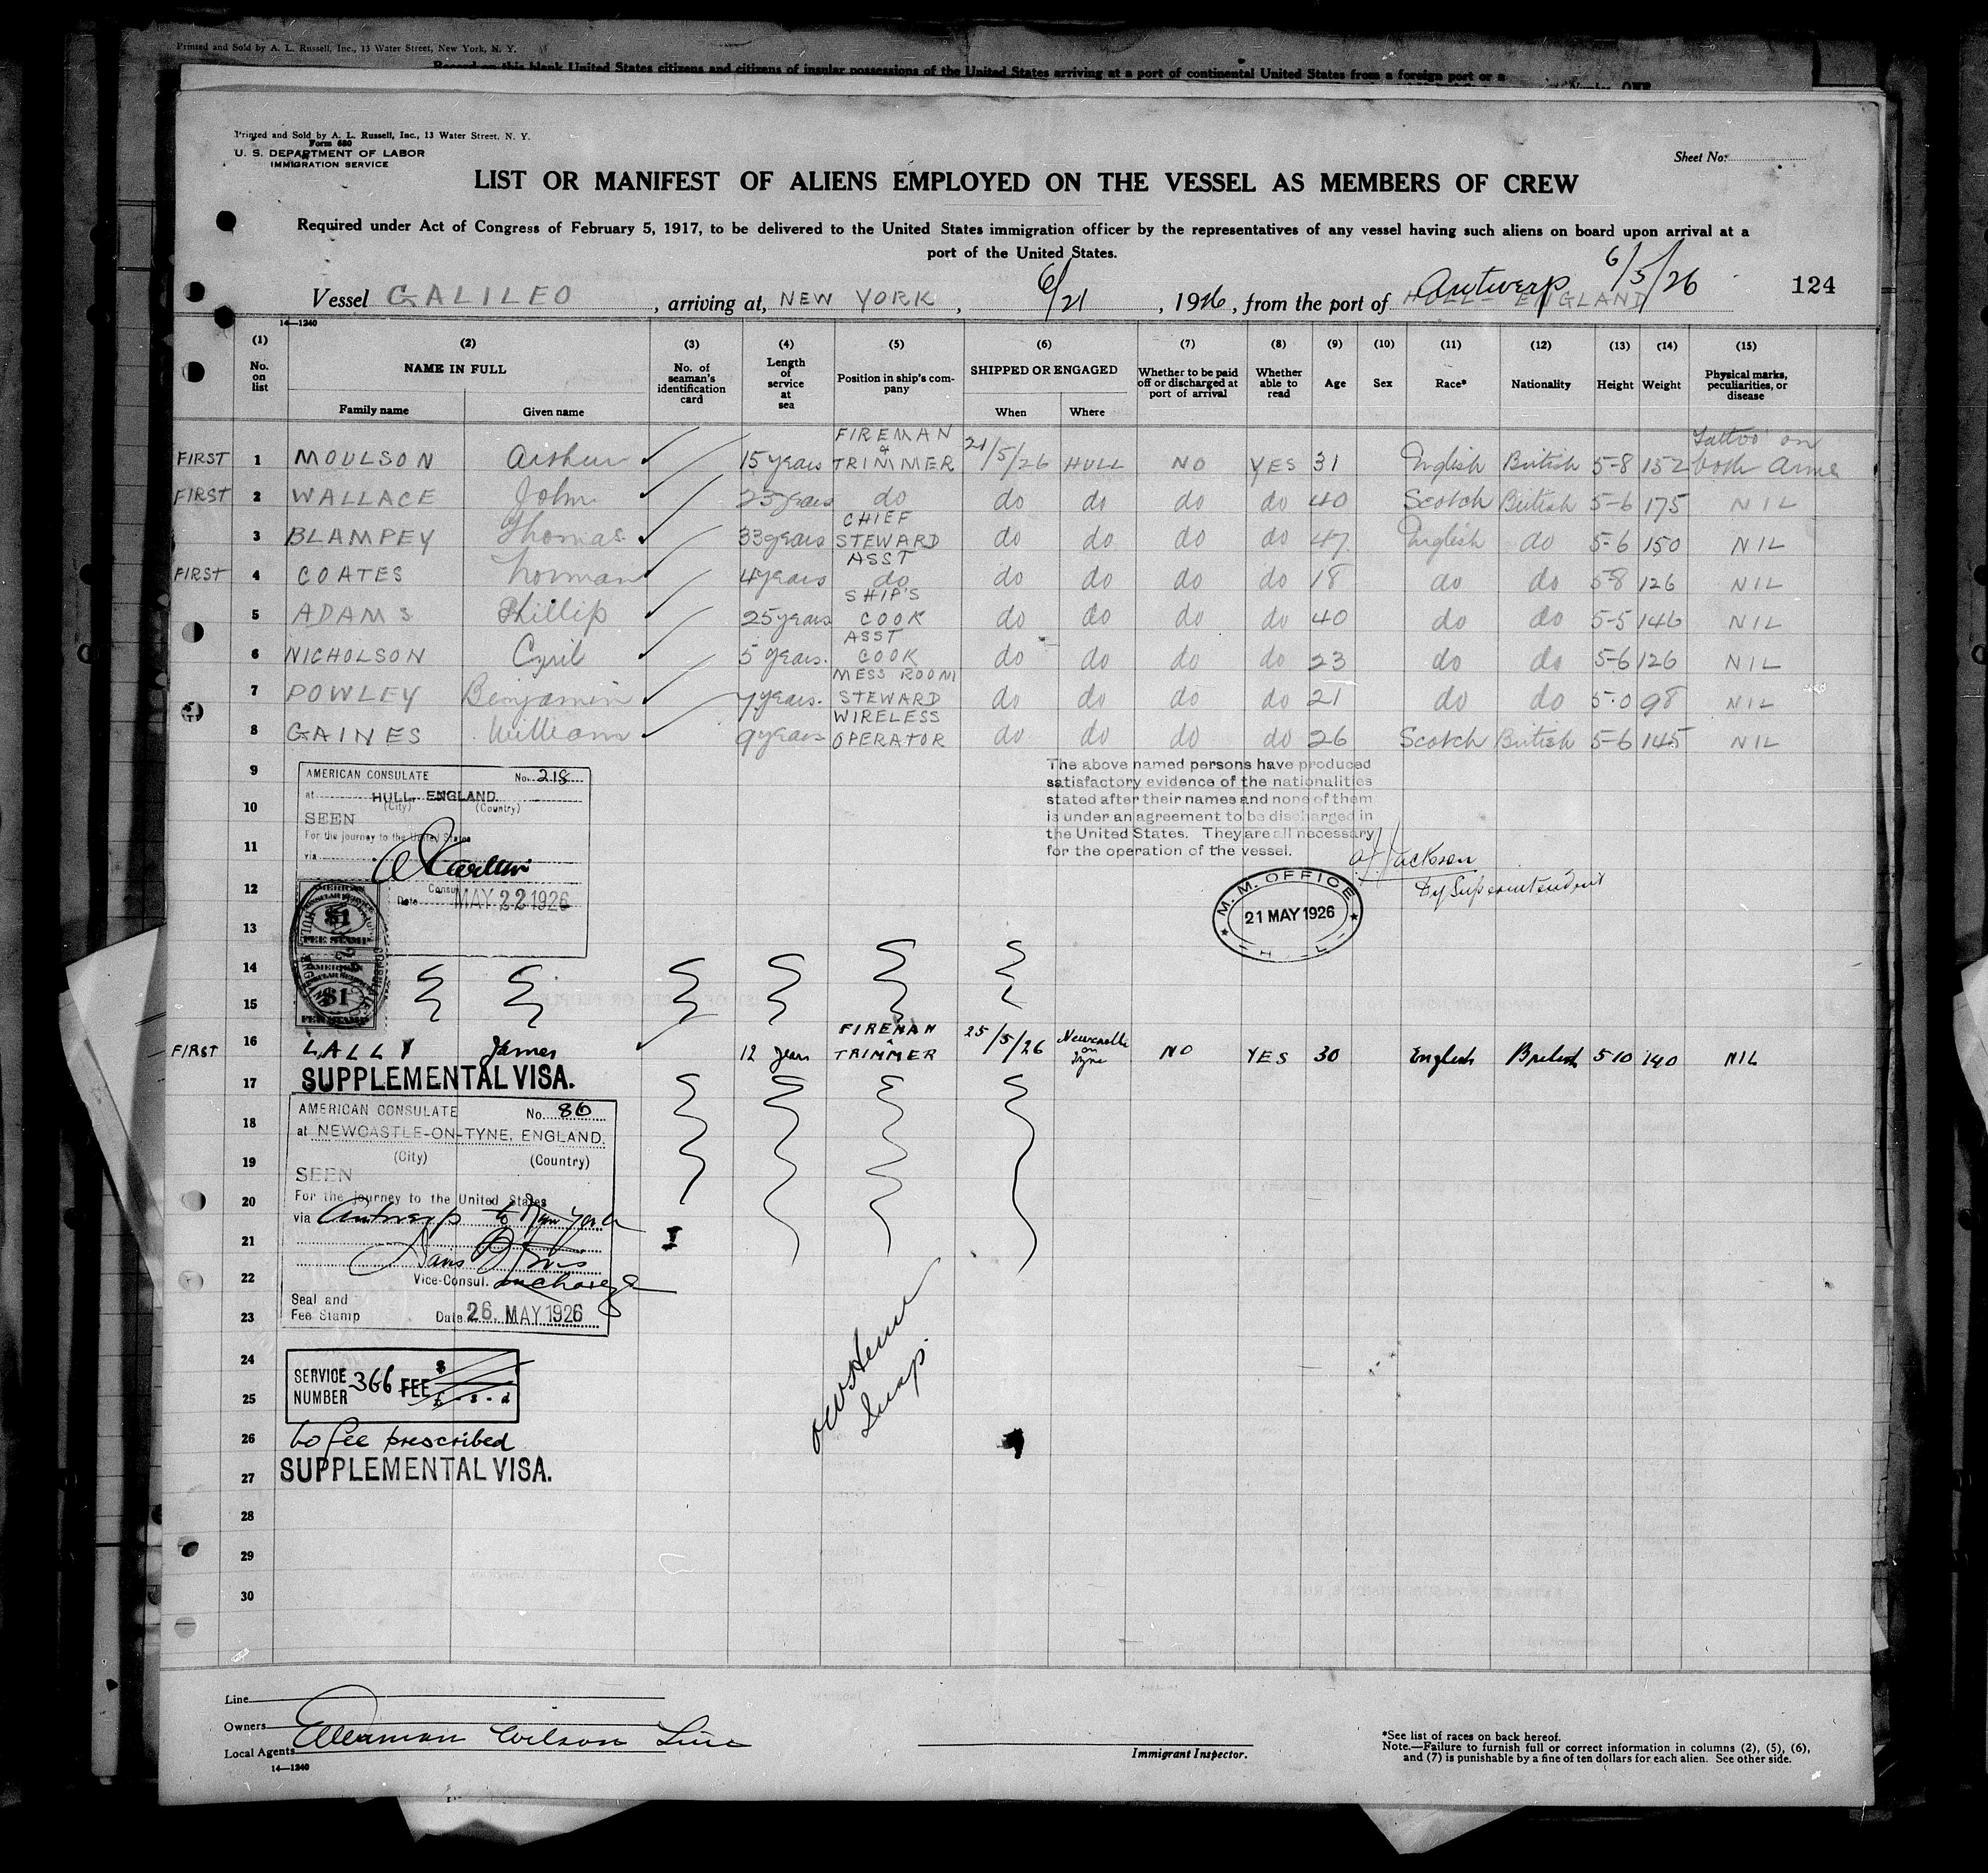 Printed and Sold by A. L. Russell, Inc., 13 Water Street, New York, N. Y.
Record on this blank United States citizens and citizens of insular possessions of the United States arriving at a port of continental United States from a foreign port or a
Printed and Sold by A. L. Russell, Inc., 13 Water Street, N. Y.
Form 680
U. S. DEPARTMENT OF LABOR
IMMIGRATION SERVICE
Sheet No.
LIST OR MANIFEST OF ALIENS EMPLOYED ON THE VESSEL AS MEMBERS OF CREW
Required under Act of Congress of February 5, 1917, to be delivered to the United States immigration officer by the representatives of any vessel having such aliens on board upon arrival at a
port of the United States.
Vessel GALILEO, arriving at, NEW YORK, 6/21, 1926, from the port of HULL - ENGLAND Antwerp 6/5/26 124
14—1240
(1) (2) (3) (4) (5) (6) (7) (8) (9) (10) (11) (12) (13) (14) (15)
No. on list NAME IN FULL Family name Given name No. of seaman's identification card Length of service at sea Position in ship's company SHIPPED OR ENGAGED When Where Whether to be paid off or discharged at port of arrival Whether able to read Age Sex Race* Nationality Height Weight Physical marks, peculiarities, or disease
FIRST 1 MOULSON Arthur 15 years FIREMAN & TRIMMER 21/5/26 HULL NO YES 31 English British 5-8 152 Tattoo on both Arms
FIRST 2 WALLACE John 23 years do do do do do 40 Scotch British 5-6 175 NIL
3 BLAMPEY Thomas 33 years CHIEF STEWARD do do do do 47 English do 5-6 150 NIL
FIRST 4 COATES Norman 4 years ASST do do do do do 18 do do 5-8 126 NIL
5 ADAMS Phillip 25 years SHIP'S COOK do do do do 40 do do 5-5 146 NIL
6 NICHOLSON Cyril 5 years. ASST COOK do do do do 23 do do 5-6 126 NIL
7 POWLEY Benjamin 7 years. MESS ROOM STEWARD do do do do 21 do do 5-0 98 NIL
8 GAINES William 9 years WIRELESS OPERATOR do do do do 26 Scotch British 5-6 145 NIL
9
10
11
12
13
14
15
AMERICAN CONSULATE No. 218
at HULL, ENGLAND.
(City) (Country)
SEEN
For the journey to the United States
via
Consul
Date MAY 22 1926
AMERICAN
CONSULAR SERVICE
$1
FEE STAMP
AMERICAN
CONSULAR SERVICE
$1
FEE STAMP
The above named persons have produced
satisfactory evidence of the nationalities
stated after their names and none of them
is under an agreement to be discharged in
the United States. They are all necessary
for the operation of the vessel.
Jackson
Dy Superintendent
M. M. OFFICE
21 MAY 1926
HULL
FIRST 16 LALLY James 12 years FIREMAN & TRIMMER 25/5/26 Newcastle on Tyne NO YES 30 English British 5-10 140 NIL
SUPPLEMENTAL VISA.
17
18
19
20
21
22
23
AMERICAN CONSULATE No. 86
at NEWCASTLE-ON-TYNE, ENGLAND.
(City) (Country)
SEEN
For the journey to the United States
via Antwerp to New York
Vice-Consul. in charge
Seal and
Fee Stamp Date 26. MAY 1926
24
25
SERVICE
NUMBER 366 FEE $
£ - s - d
26 No fee prescribed
27 SUPPLEMENTAL VISA.
Insp.
28
29
30
Line
Owners
Ellerman Wilson Line
Local Agents
14—1240
Immigrant Inspector.
*See list of races on back hereof.
Note.—Failure to furnish full or correct information in columns (2), (5), (6),
and (7) is punishable by a fine of ten dollars for each alien. See other side.